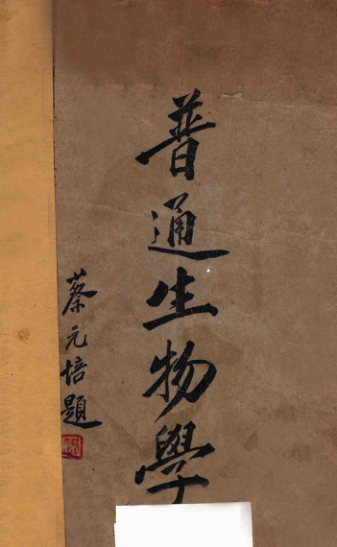 普通生物學
蔡元培題